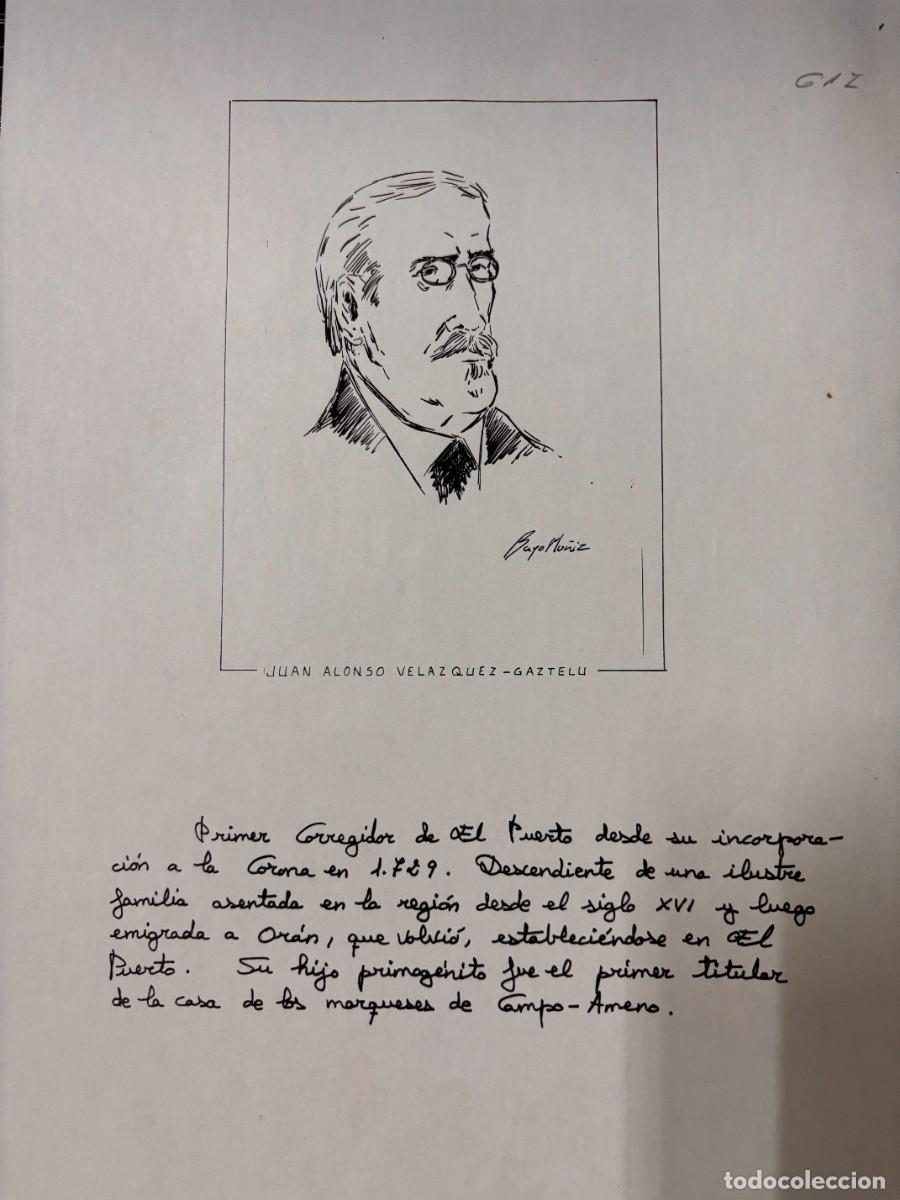 612
Bayo Muñiz
JUAN ALONSO VELAZQUEZ-GAZTELU
Primer Corregidor de El Puerto desde su incorpora-
ción a la Corona en 1.729. Descendiente de una ilustre
familia asentada en la región desde el siglo XVI y luego
emigrada a Orán, que volvió, estableciéndose en El
Puerto. Su hijo primogénito fue el primer titular
de la casa de los marqueses de Campo-Ameno.
todocoleccion